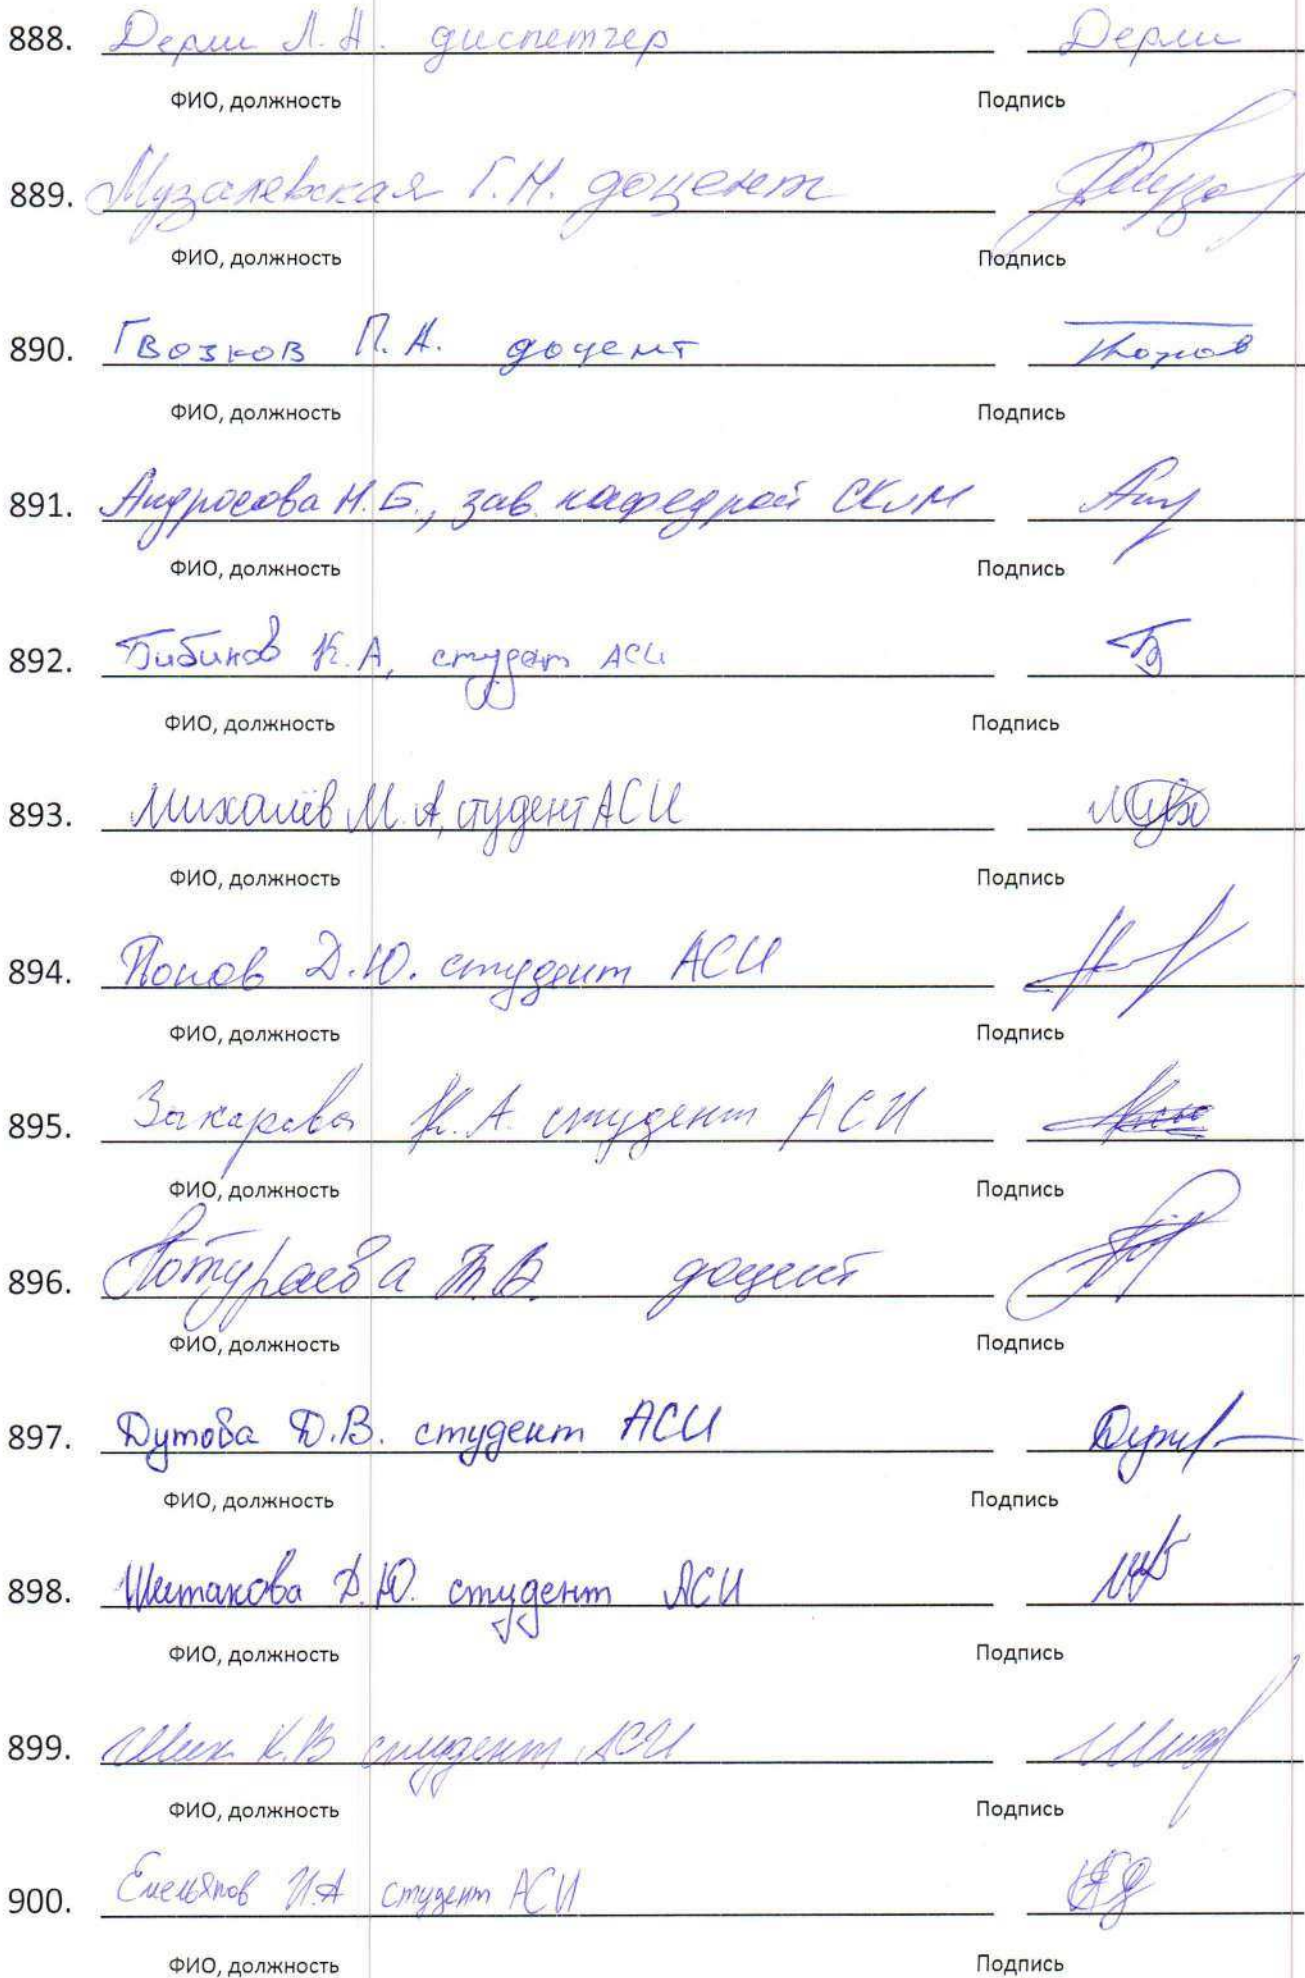 888. Дерли Л.А. диспетчер Дерли
ФИО, должность Подпись
889. Музалевская Г.Н. доцент
ФИО, должность Подпись
890. Гвозков П.А. доцент
ФИО, должность Подпись
891. Андросова Н.Б., зав. кафедрой СКиМ
ФИО, должность Подпись
892. Бибиков К.А, студент АСИ
ФИО, должность Подпись
893. Михалёв М.А, студент АСИ
ФИО, должность Подпись
894. Попов Д.Ю. студент АСИ
ФИО, должность Подпись
895. Захарова К.А. студент АСИ
ФИО, должность Подпись
896. Потураева Т.В. доцент
ФИО, должность Подпись
897. Дутова Д.В. студент АСИ
ФИО, должность Подпись
898. Шитакова Д.Ю. студент АСИ
ФИО, должность Подпись
899. К.В студент АСИ
ФИО, должность Подпись
900. Емельянов И.А студент АСИ
ФИО, должность Подпись